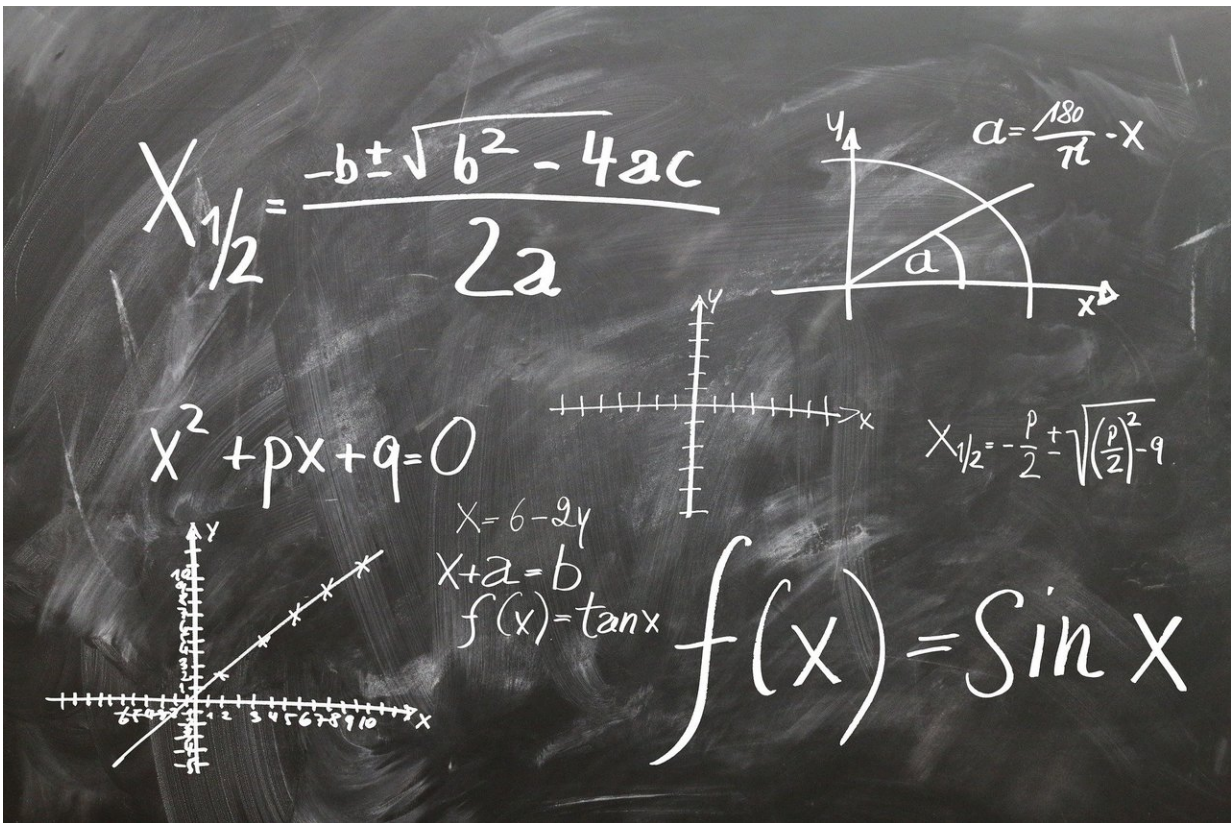 X₁/₂ = (-b ± √(b² - 4ac)) / 2a
y
a = 180/π - x
a
x
y
x
x² + px + q = 0
X₁/₂ = -p/2 ± √((p/2)² - q)
x = 6 - 2y
x + a = b
f(x) = tan x
f(x) = Sin x
y
10
1 2 3 4 5 6 7 8 9 10 x